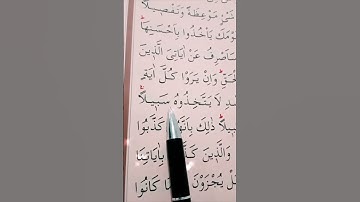 شَيْءٍ مَوْعِظَةً وَتَفْصِيلًا
قَوْمَكَ يَأْخُذُوا بِاَحْسَنِهَا
سَاَصْرِفُ عَنْ اٰيَاتِيَ الَّذِينَ
الْحَقِّ وَاِنْ يَرَوْا كُلَّ اٰيَةٍ
لَا يَتَّخِذُوهُ سَبِيلًا
ذٰلِكَ كَذَّبُوا
وَالَّذِينَ كَذَّبُوا بِاٰيَاتِنَا
يُجْزَوْنَ مَا كَانُوا